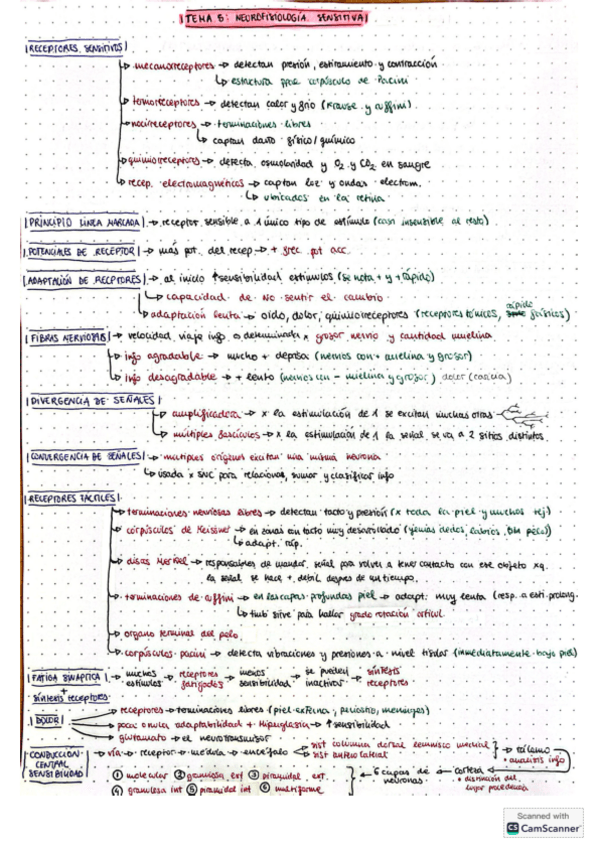 TEMA 5: NEUROFISIOLOGÍA SENSITIVA
RECEPTORES SENSITIVOS
mecanoreceptores → detectan presión, estiramiento y contracción
↳ estructura corpúsculo de Pacini
termoreceptores → detectan calor y frío (Krause y Ruffini)
nocireceptores → terminaciones libres
↳ captan daño físico/químico
quimioreceptores → detecta osmolaridad y O2 y CO2 en sangre
recep. electromagnéticos → captan luz y ondas electrom.
↳ ubicados en la retina
PRINCIPIO LÍNEA MARCADA → receptor sensible a 1 único tipo de estímulo (casi insensible al resto)
POTENCIALES DE RECEPTOR → más pot. del recep → + frec. pot acc.
ADAPTACIÓN DE RECPTORES → al inicio ↑ sensibilidad estímulos (se nota + y + rápido)
↳ capacidad de no sentir el cambio
↳ adaptación lenta → oído, dolor, quimioreceptores (receptores tónicos, rápido fásicos)
FIBRAS NERVIOSAS → velocidad viaje info determinada x grosor nervio y cantidad mielina
info agradable → mucho + deprisa (nervios con + mielina y grosor)
info desagradable → + lento (nervios con - mielina y grosor) dolor (caricia)
DIVERGENCIA DE SEÑALES
amplificadora → x la estimulación de 1 se excitan muchas otras
múltiples fascículos → x la estimulación de 1 la señal se va a 2 sitios distintos
CONVERGENCIA DE SEÑALES → múltiples orígenes excitan una misma neurona
↳ usada x SNC para relacionar, sumar y clasificar info
RECEPTORES TÁCTILES
terminaciones nerviosas libres → detectan tacto y presión (x toda la piel y muchos tej)
corpúsculos de Meissner → en zonas con tacto muy desarrollado (yemas dedos, labios, piel)
↳ adapt. ráp.
discos Merkel → responsables de mandar señal para volver a tener contacto con ese objeto xq
la señal se hace + débil despes de un tiempo.
terminaciones de ruffini → en las capas profundas piel → adapt. muy lenta (resp. a esti. prolong.
↳ tmb sirve para hallar grado rotación articul.
organo terminal del pelo
corpúsculos pacini → detecta vibraciones y presiones a nivel tisular (inmediatamente bajo piel)
FATIGA SINÁPTICA → muchos estímulos → receptores fatigados → menos sensibilidad → se pueden inactivar → síntesis receptores
+
síntesis receptores
DOLOR
receptores → terminaciones libres (piel externa, periostio, meninges)
poca o nula adaptabilidad + Hiperalgesia → ↑ sensibilidad
glutamato → el neurotransmisor
CONDUCCIÓN CENTRAL SENSIBILIDAD → vía → receptor → médula → encéfalo
sist columna dorsal lemnisco medial
sist antero lateral
→ tálamo
• analisis info
① molecular ② granulosa ext ③ piramidal ext.
④ granulosa int ⑤ piramidal int ⑥ multiforme
6 capas de neuronas ← corteza
• distinción del lugar procedencia
Scanned with
CS CamScanner